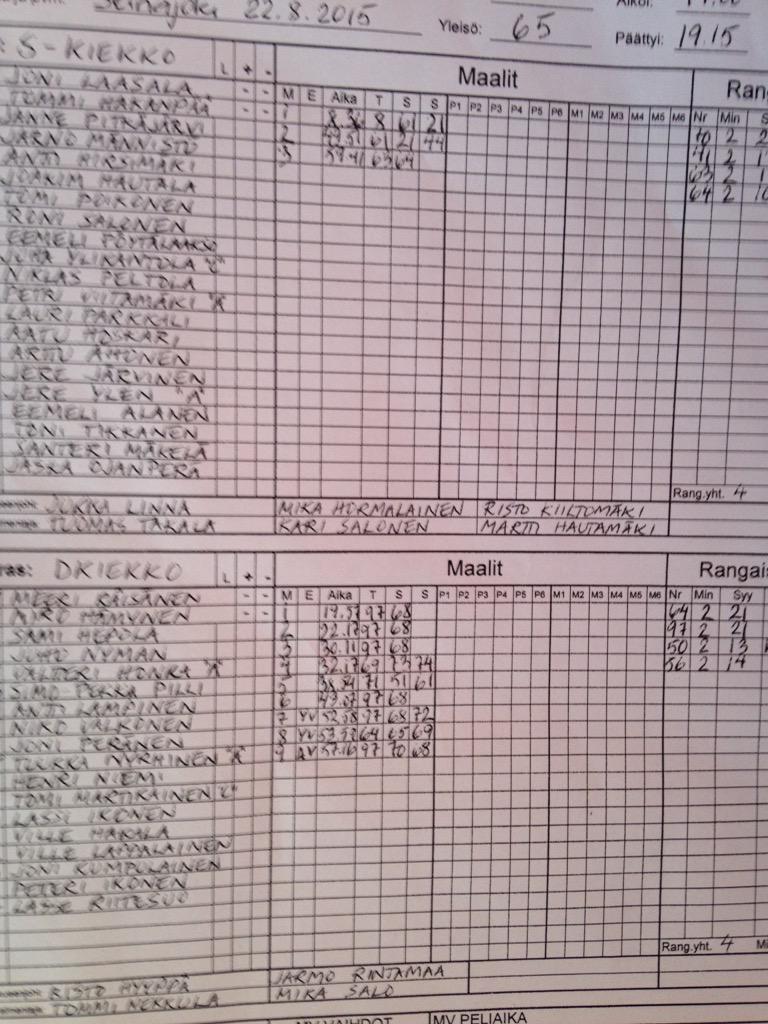 Seinäjoki 22.8.2015 Yleisö: 65 Päättyi: 19.15
S-KIEKKO L + - Maalit Ran
M E Aika T S S P1 P2 P3 P4 P5 P6 M1 M2 M3 M4 M5 M6 Nr Min
JONI LAASALA - -
TOMMI HAKANPÄÄ - - 1 8.36 8 61 21 70 2
JANNE PITKÄJÄRVI 2 61 21 44 71 2
JARNO MÄNNISTÖ 3 59.41 63 64 63 2
ANTTI HIRSIMÄKI 64 2
JOAKIM HAUTALA
TOMI POIKONEN
RONI SALONEN
EEMELI PÖYTÄLAAKSO
JUHA YLIKAINTOLA "C"
NIKLAS PELTOLA
PETRI VIITAMÄKI "A"
LAURI PARKKALI
AATU HOSKARI
ARTTU AHONEN
JERE JÄRVINEN
JERE YLEN "A"
EEMELI ALANEN
TONI TIKKANEN
SANTERI MÄKELÄ
JASKA OJANPERÄ
Rang.yht. 4
JUKKA LINNA MIKA HORMALAINEN RISTO KIILTOMÄKI
TUOMAS TAKALA KARI SALONEN MARTTI HAUTAMÄKI
ras: DKIEKKO L + - Maalit Rangais
M E Aika T S S P1 P2 P3 P4 P5 P6 M1 M2 M3 M4 M5 M6 Nr Min Syy
MEERI RÄISÄNEN - - 1 19.57 97 68 64 2 21
MIRO HÄMYNEN - - 2 22.17 97 68 97 2 21
SAMI HEPOLA 3 30.11 97 68 50 2 13
JUHO NYMAN 4 32.17 69 73 74 56 2 14
VALTTERI HONKA "A" 5 71 51 61
SIMO PEKKA PILLI 6 97 68
ANTTI LAMPINEN 7 YV 52.58 97 68 72
NIKO VALKONEN 8 YV 64 65 69
JONI PERÄNEN 9 AV 57.16 97 70 68
TUUKKA NYRHINEN "A"
HENRI NIEMI
TOMI MARTIKAINEN "C"
LASSI IKONEN
VILLE HAKALA
VILLE LAPPALAINEN
JONI KUMPULAINEN
PETERI IKONEN
LASSE RIITESUO
Rang.yht. 4
RISTO HYYPPÄ JARMO RINTAMAA
TOMMI NEKKULA MIKA SALO
MV VAIHDOT MV PELIAIKA